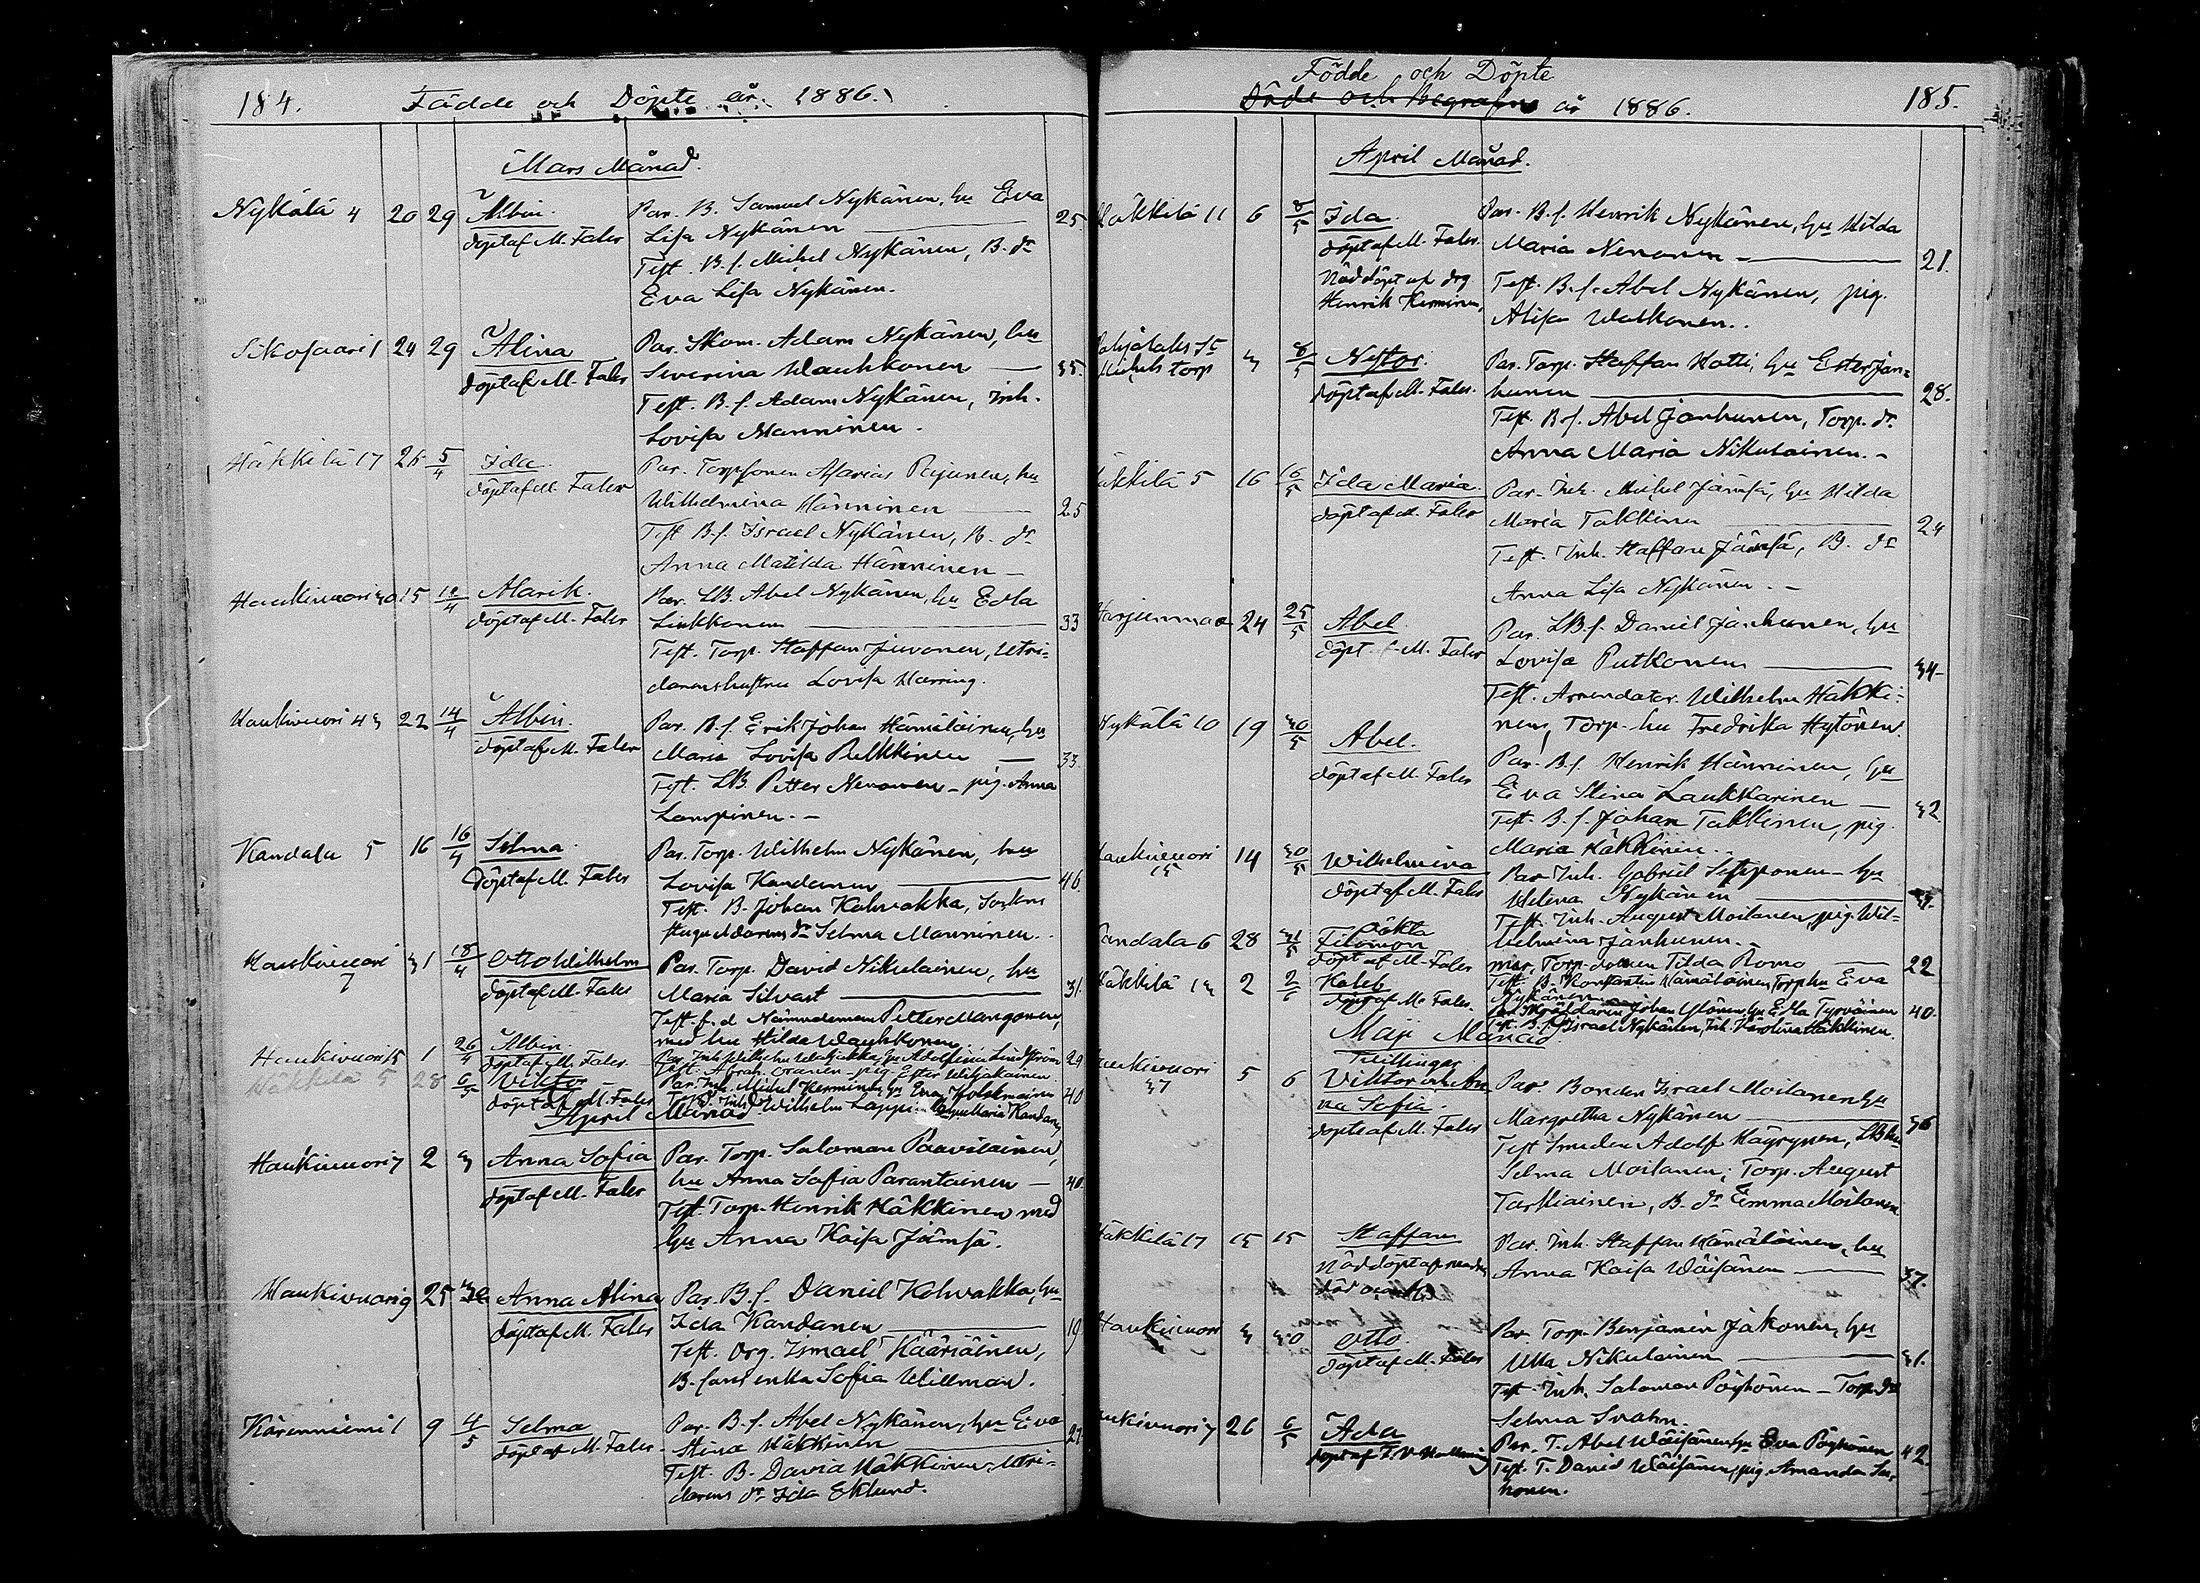 184. Födde och Döpte år 1886.
Mars Månad.
Nykälä 4 20 29 Albin. Par. B. Samuel Nykänen, hu Eva
döpt af M. Faler Lisa Nykänen 25.
Test. B. s. Mickel Nykänen, B. dr
Eva Lisa Nykänen.
24 29 Alina Par. Skom. Adam Nykänen, hu
döpt af M. Faler Severina Waukkonen 35.
Test. B. s. Adam Nykänen, Inh.
Lovisa Manninen.
Häkkilä 17 25 5/4 Ida Par. Torpsonen Asarias Pejunen, hu
döpt af M. Faler Wilhelmina Hänninen 25
Test B. s. Israel Nykänen, B. dr
Anna Matilda Hänninen
Haukivuori 30 15 Alarik. Par. LB. Abel Nykänen, hu Edla
döpt af M. Faler Liukkonen 33
Test. Torp. Staffan Juvonen, Utri-
darens hustru Lovisa Harring.
Haukivuori 43 22 14/4 Albin. Par. B. s. Erik Johan Hämäläinen, hu
döpt af M. Faler Maria Lovisa Pulkkinen 33.
Test. LB. Petter Nenonen - pig. Anna
Lampinen. -
Kandala 5 16 16/4 Selma. Par. Torp. Wilhelm Nykänen, hu
döpt af M. Faler Lovisa Kandanen 46.
Test. B. Johan Kolvakka, Socken
dr Selma Manninen.
Haukivuori 7 31 18/4 Otto Wilhelm Par. Torp. David Nikulainen, hu
döpt af M. Faler Maria Silvast 31.
Test. f. d. Nämndeman Petter Mangonen,
med hu Hilda Waukkonen.
Haukivuori 15 1 26/4 Albin. Par. Inh. Wilhelm hu Adolfina Lindström 29
döpt af M. Faler Test. Abrah. Oranen - pig. Ester
Häkkilä 5 28 6/5 Viktor Par. Inh. Mickel Kerminen, hu Eva 40
döpt af M. Faler Wilhelm Maria Kandanen
April Månad
Haukivuori 7 2 3 Anna Sofia Par. Torp. Saloman Paavilainen,
döpt af M. Faler hu Anna Sofia Parantainen 40.
Test. Torp. Henrik Häkkinen med
hu Anna Kaisa Jämsä.
Haukivuori 9 25 Anna Alina Par. B. s. Daniel Kolvakka, hu
döpt af M. Faler Ida Kandanen 19.
Test. Drg. Ismael Kääriäinen,
B. sons enka Sofia Willman.
Kärenniemi 1 9 4/5 Selma Par. B. s. Abel Nykänen, hu Eva
döpt af M. Faler Stina Häkkinen 27
Test. B. David Häkkinen, Utri-
darens dr Ida Eklund.
Födde och Döpte
Döde och Begrafne år 1886. 185.
April Månad.
Häkkilä 11 6 8/5 Ida. Par. B. s. Henrik Nykänen, hu Hilda
döpt af M. Faler. Maria Nenonen 21.
Nöddöpt af drg Test. B. s. Abel Nykänen, pig.
Henrik Kerminen, Alisa Walkonen..
torp 3 8/5 Nestor. Par. Torp. Staffan Hotti, hu Ester Jan-
döpt af M. Faler. hunen 28.
Test. B. s. Abel Janhunen, Torp. dr
Anna Maria Nikulainen. -
Häkkilä 5 16 16/5 Ida Maria. Par. Inh. Mickel Jämsä, hu Hilda
döpt af M. Faler Maria Takkinen 24
Test. Inh. Staffan Jämsä, B. dr
Anna Lisa Nykänen. -
Harjunmaa 24 25/5 Abel. Par. LB. s. Daniel Janhunen, hu
döpt af M. Faler Lovisa Putkonen 34
Test. Arrendator Wilhelm Häkki-
nen, Torp. hu Fredrika Hytönen.
Nykälä 10 19 30/5 Abel. Par. B. s. Henrik Hänninen, hu
döpt af M. Faler Eva Stina Laukkarinen 32.
Test. B. s. Johan Takkinen, pig.
Maria Häkkinen..
Haukivuori 15 14 30/5 Wilhelmina Par. Inh. Gabriel Sepponen - hu
döpt af M. Faler Helena Nykänen
Test. Inh. August Moilanen, pig. Wil-
helmina Janhunen. -
Kandala 6 28 31/5 Oäkta
Filemon
döpt af M. Faler Torp. Tilda Romo 22
Test. B. Konstantin Hämäläinen, Torp. hu Eva
Nykänen
Häkkilä 13 2 Kaleb Johan Ylönen, hu Edla Tyrväinen 40.
döpt af M. Faler. Test. B. s. Israel Nykänen, Inh. Karolina Häkkinen.
Maji Månad
Haukivuori 37 5 6 Tvillingar
Viktor och An- Par. Bonden Israel Moilanen, hu
na Sofia. Margretha Nykänen 36
döpte af M. Faler Test Smeden Adolf Käyrynen, LB hu
Selma Moilanen; Torp. August
Tarkiainen, B. dr Emma Moilanen.
Häkkilä 17 15 15 Staffan Par. Inh. Staffan Hämäläinen, hu
Nöddöpt af Anna Kaisa Wäisänen 37.
Haukivuori 3 30 Otto. Par Torp. Benjamin Jakonen, hu
döpt af M. Faler Ulla Nikulainen 31.
Test. Inh. Saloman Pöyhönen - Torp. dr
Selma Svahn.
Haukivuori 7 26 6/5 Ada Par. T. Abel Wäisänen, hu Eva Pöyhönen 42.
döpt af Test. T. David Wäisänen, pig. Amanda
honen.